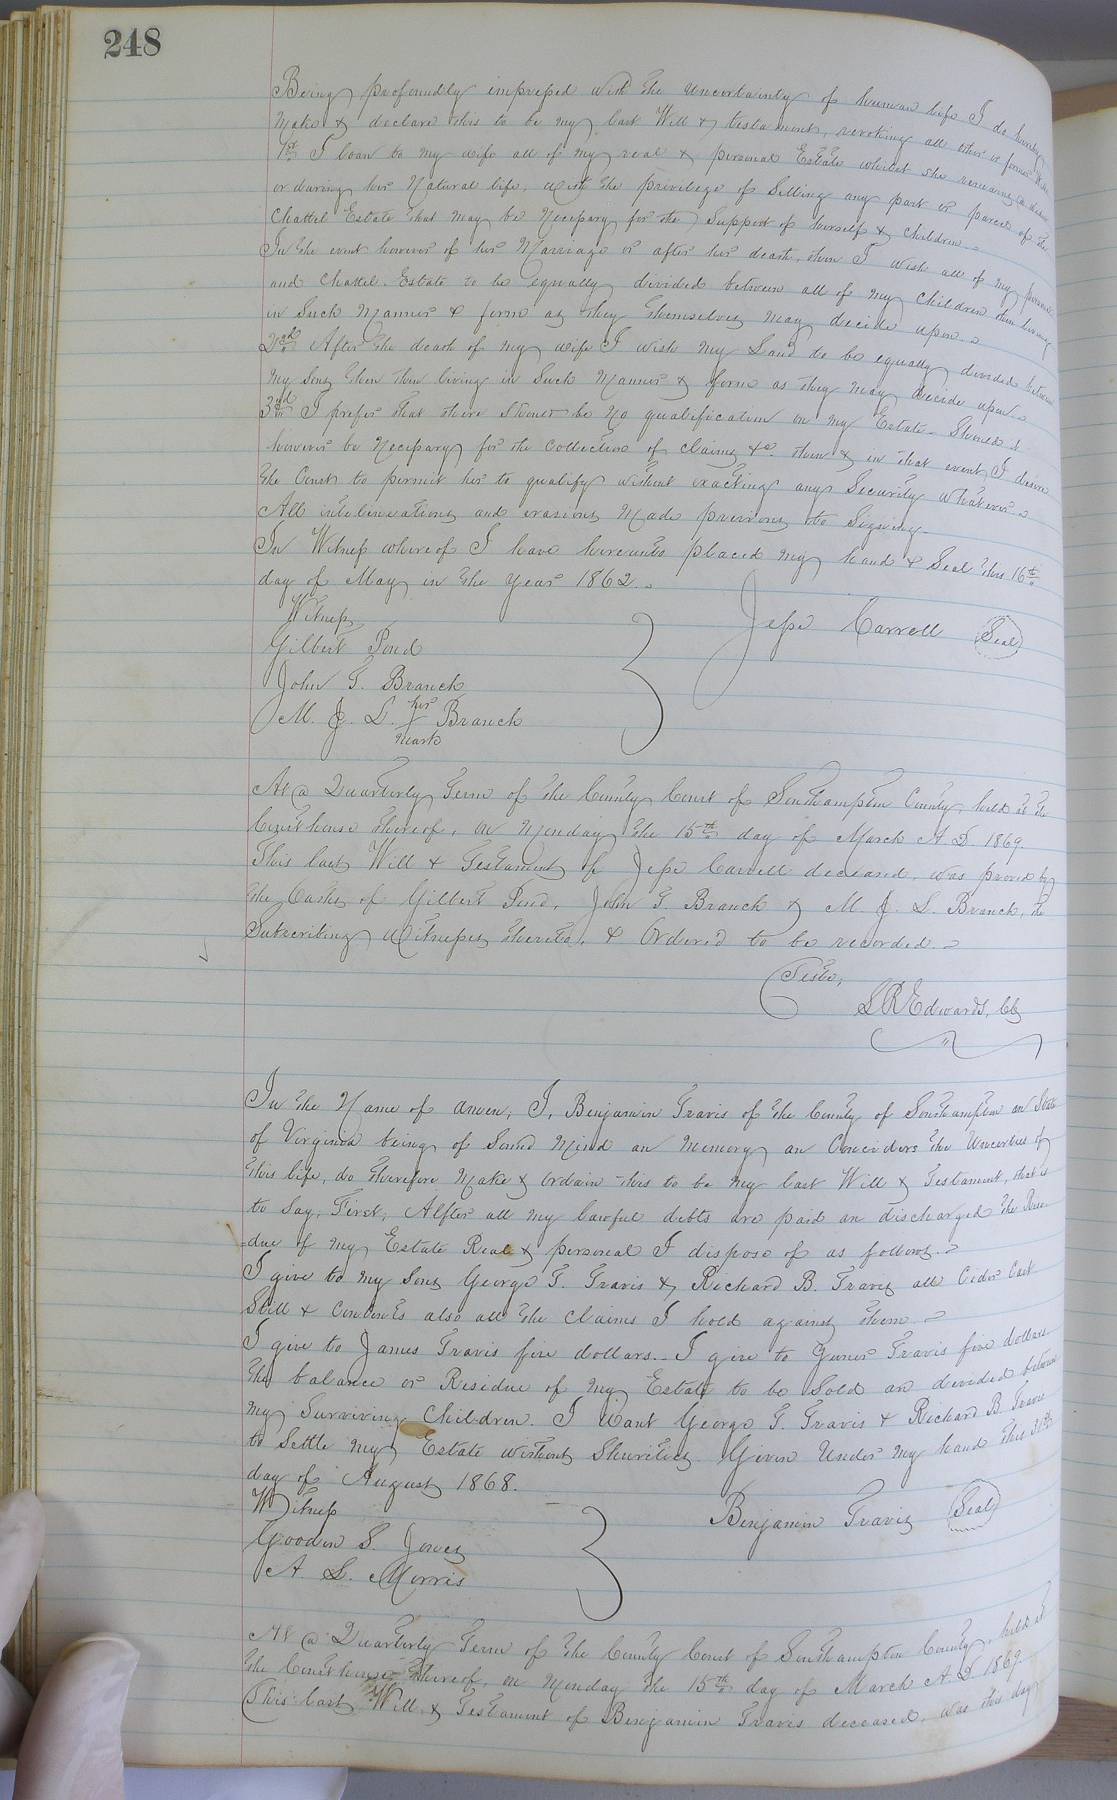 248
Being profoundly impressed with the uncertainty of human life I do hereby
make & declare this to be my last Will & testament, revoking all other or former Wills
1st I loan to my wife all of my real & personal Estate whilst she remains a widow
or during her Natural life, with the privilege of Selling any part or parcel of the
Chattel Estate that may be Necessary for the Support of herself & children.
In the event however of her Marriage or after her death, then I wish all of my personal
and Chattel Estate to be equally divided between all of my children then living
in Such Manner & form as they themselves may decide upon.
2nd After the death of my wife I wish my Land to be equally divided between
my Sons then living in Such Manner & form as they may decide upon.
3rd I prefer that there Should be no qualification on my Estate. Should it
however be Necessary for the collection of claims &c. then & in that event I desire
the Court to permit her to qualify without exacting any Security whatever.
All interlineations and erasions made previous to Signing.
In Witness whereof I have hereunto placed my hand & Seal this 16th
day of May in the year 1862.
Witness
Jesse Carrell Seal
Gilbert Pond
John T. Branch
M. J. L. her Branch
mark
At a Quarterly Term of the County Court of Southampton County, held at the
Courthouse thereof, on Monday the 15th day of March A.D. 1869.
This last Will & Testament of Jesse Carrell deceased, was proved by
the Oaths of Gilbert Pond, John T. Branch & M. J. L. Branch, the
Subscribing Witnesses thereto, & Ordered to be recorded.
Teste,
L R Edwards, Clk
In the Name of amen, I, Benjamin Travis of the County of Southampton an State
of Virginia being of Sound Mind an Memory an Conciders the of
this life, do therefore Make & Ordain this to be my last Will & Testament, that is
to Say, First, After all my lawful debts are paid an discharged the Resi
=due of my Estate Real & personal I dispose of as follows.
I give to my Sons George T. Travis & Richard B. Travis all
Still & also all the Claims I hold against them.
I give to James Travis five dollars. I give to Travis five dollars
the balance or Residue of my Estate to be Sold an devided between
my Surviving Children. I Want George T. Travis & Richard B. Travis
to Settle my Estate without Shurities. Given Under my hand this 31st
day of August 1868.
Witness
Benjamin Travis Seal
Goodwin S. Jones
A. L. Morris
At a Quarterly Term of the County Court of Southampton County, held at
the Courthouse thereof, on Monday the 15th day of March A.D. 1869.
This last Will & Testament of Benjamin Travis deceased, was this day